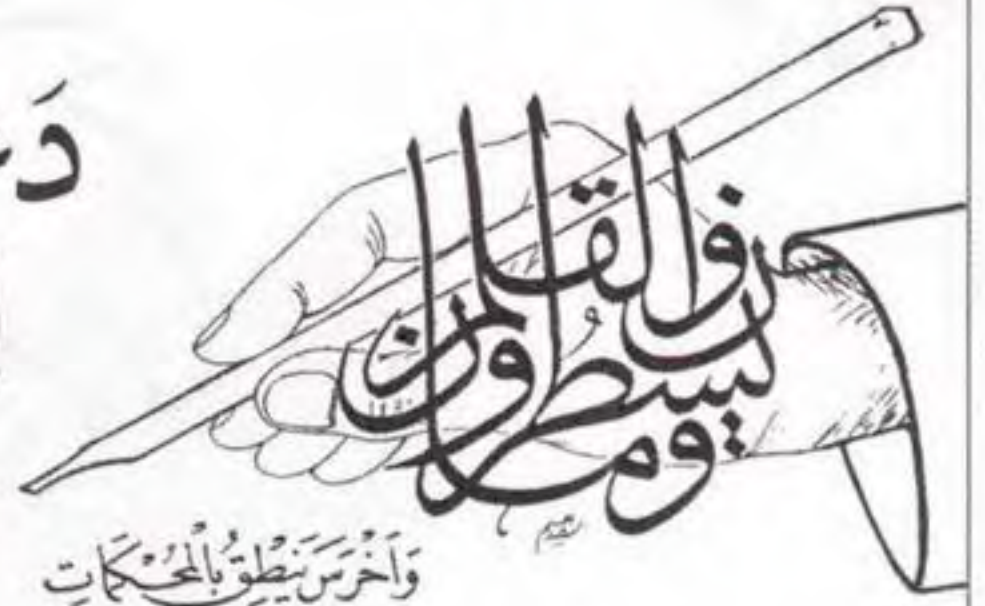 ن والقلم وما يسطرون
وَأَخْرَسَ يَنْطِقُ بِالْمُحْكَمَاتِ